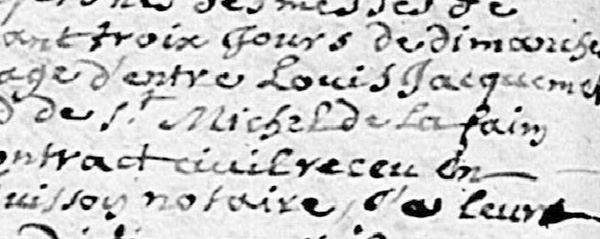 des messes de
ant troix Jours de dimanche
age d'entre Louis Jacquemet
de S.t Michel de la faim
ontract civil receu En
uisson notaire, J'a leurs